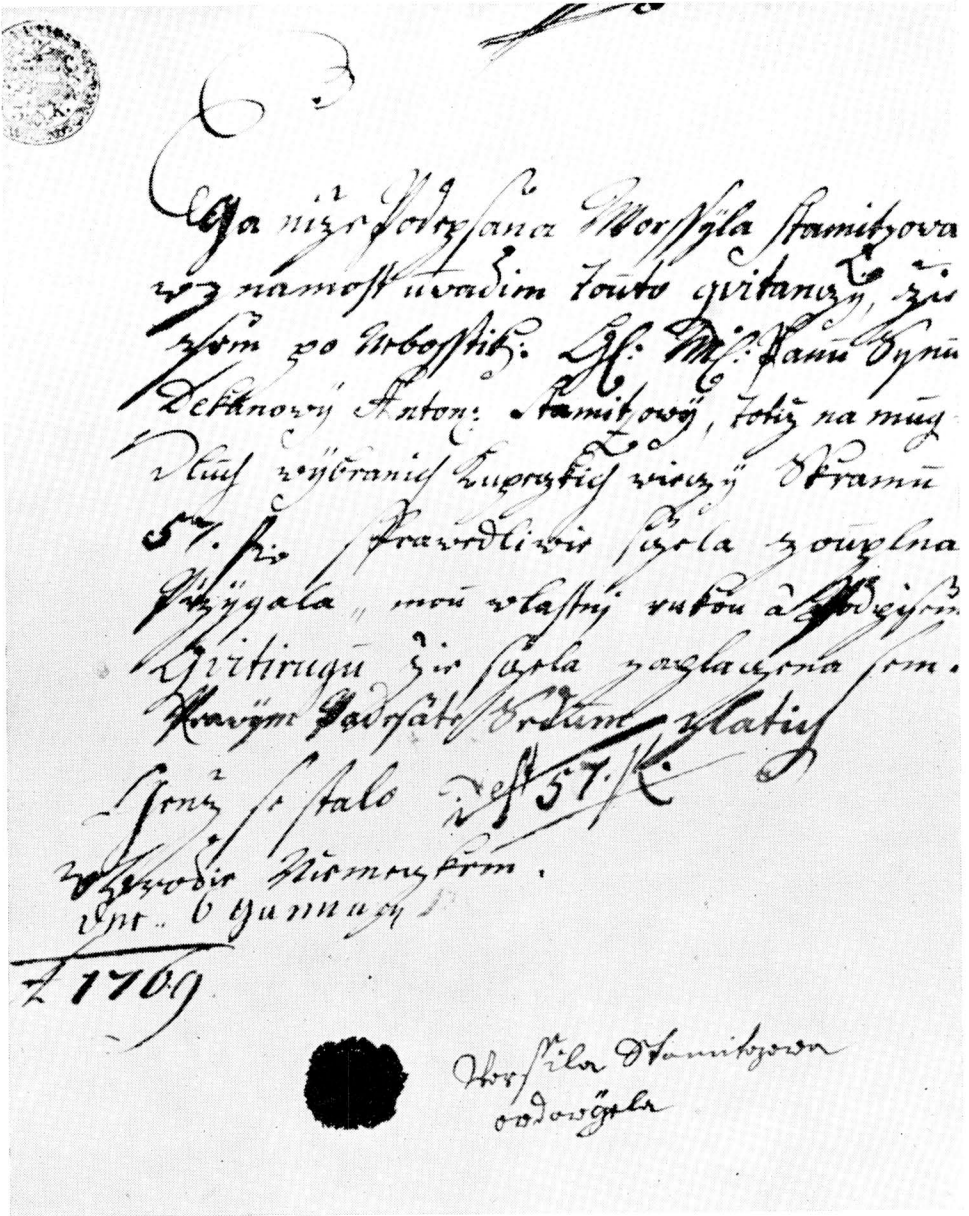 Ga nize Podepsana Worssyla Stamitzowa
w znamost uwadim touto gvitanczy, zie
sem po Nebosstik: Panu Synu
Dekanowy Anton: Stamitzowy, totiz na mug
Dluh wybranich Kupeczkich wieczy Skramu
57. sprawedliwie sczela zouplna
Przygala ,, mou wlastnj rukou a Podpisem
Gvitirugu zie sczela zaplaczena sem.
Prawym Padesate Sedum zlatich
Genz se stalo Dest 57.
w Brodie Niemeczkem.
Dne .. 6 Ganuary
A 1769
Worssila Stamitzowa